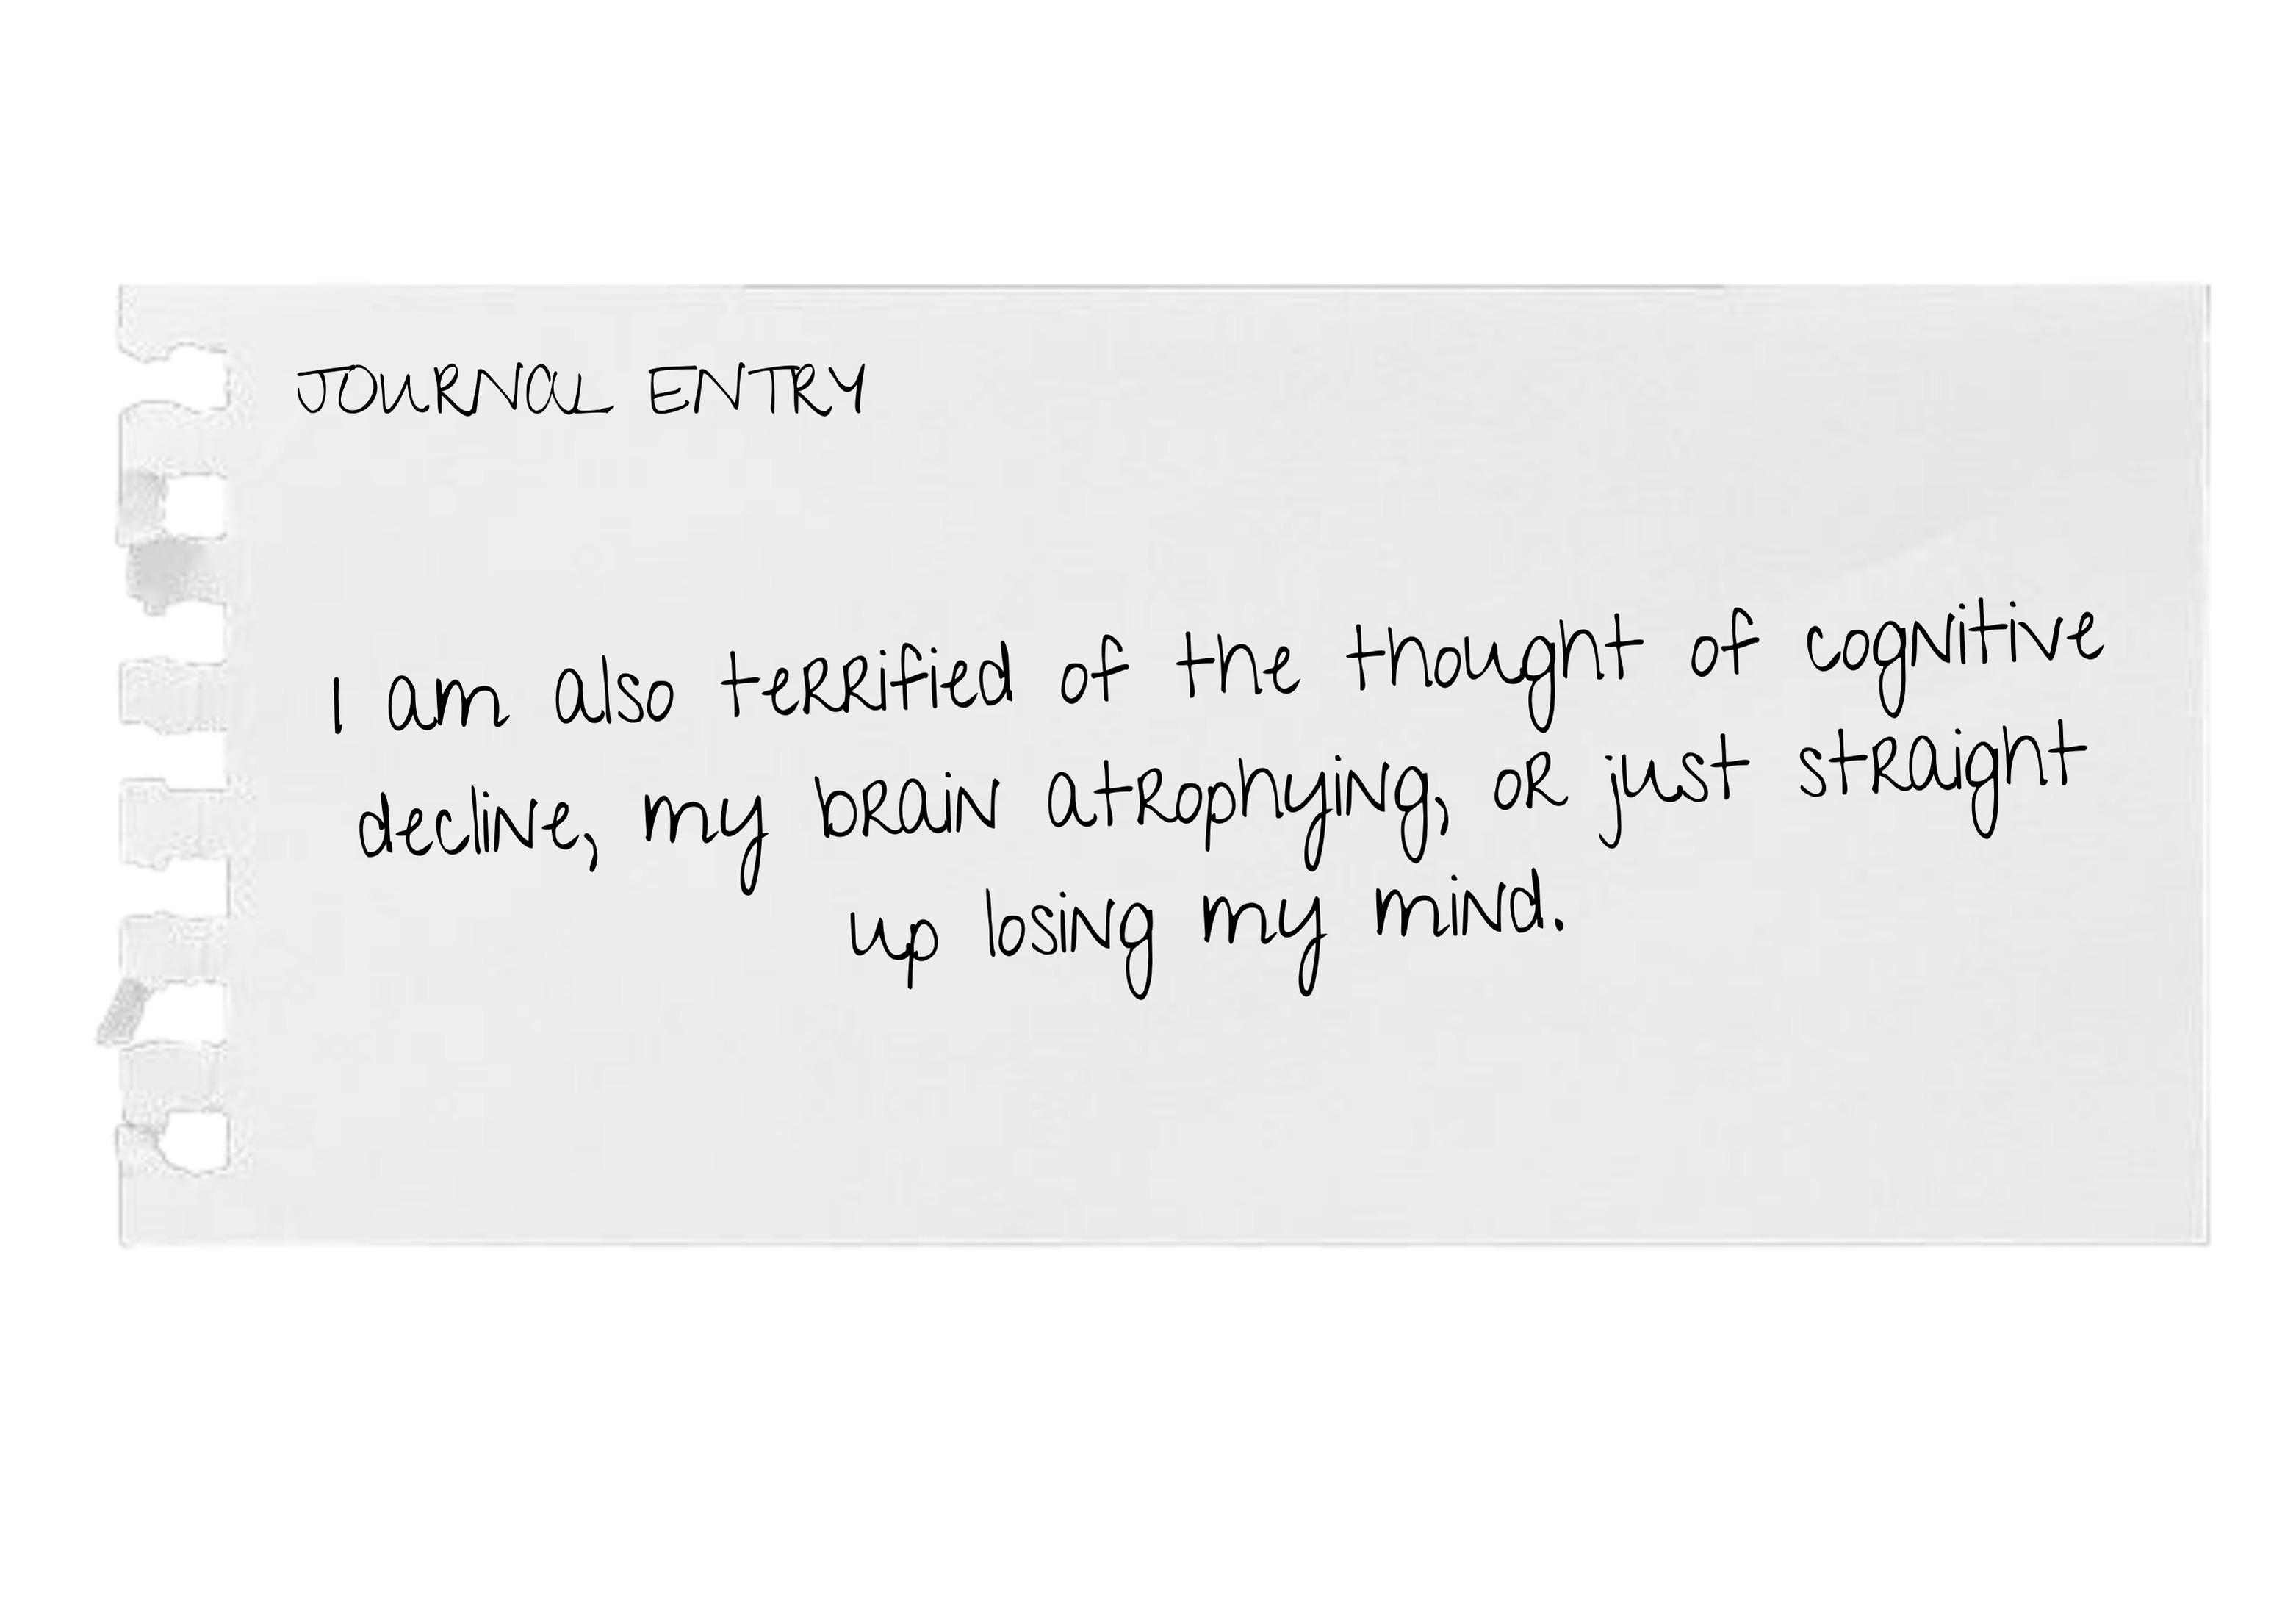 JOURNAL ENTRY
I am also terrified of the thought of cognitive
decline, my brain atrophying, or just straight
up losing my mind.